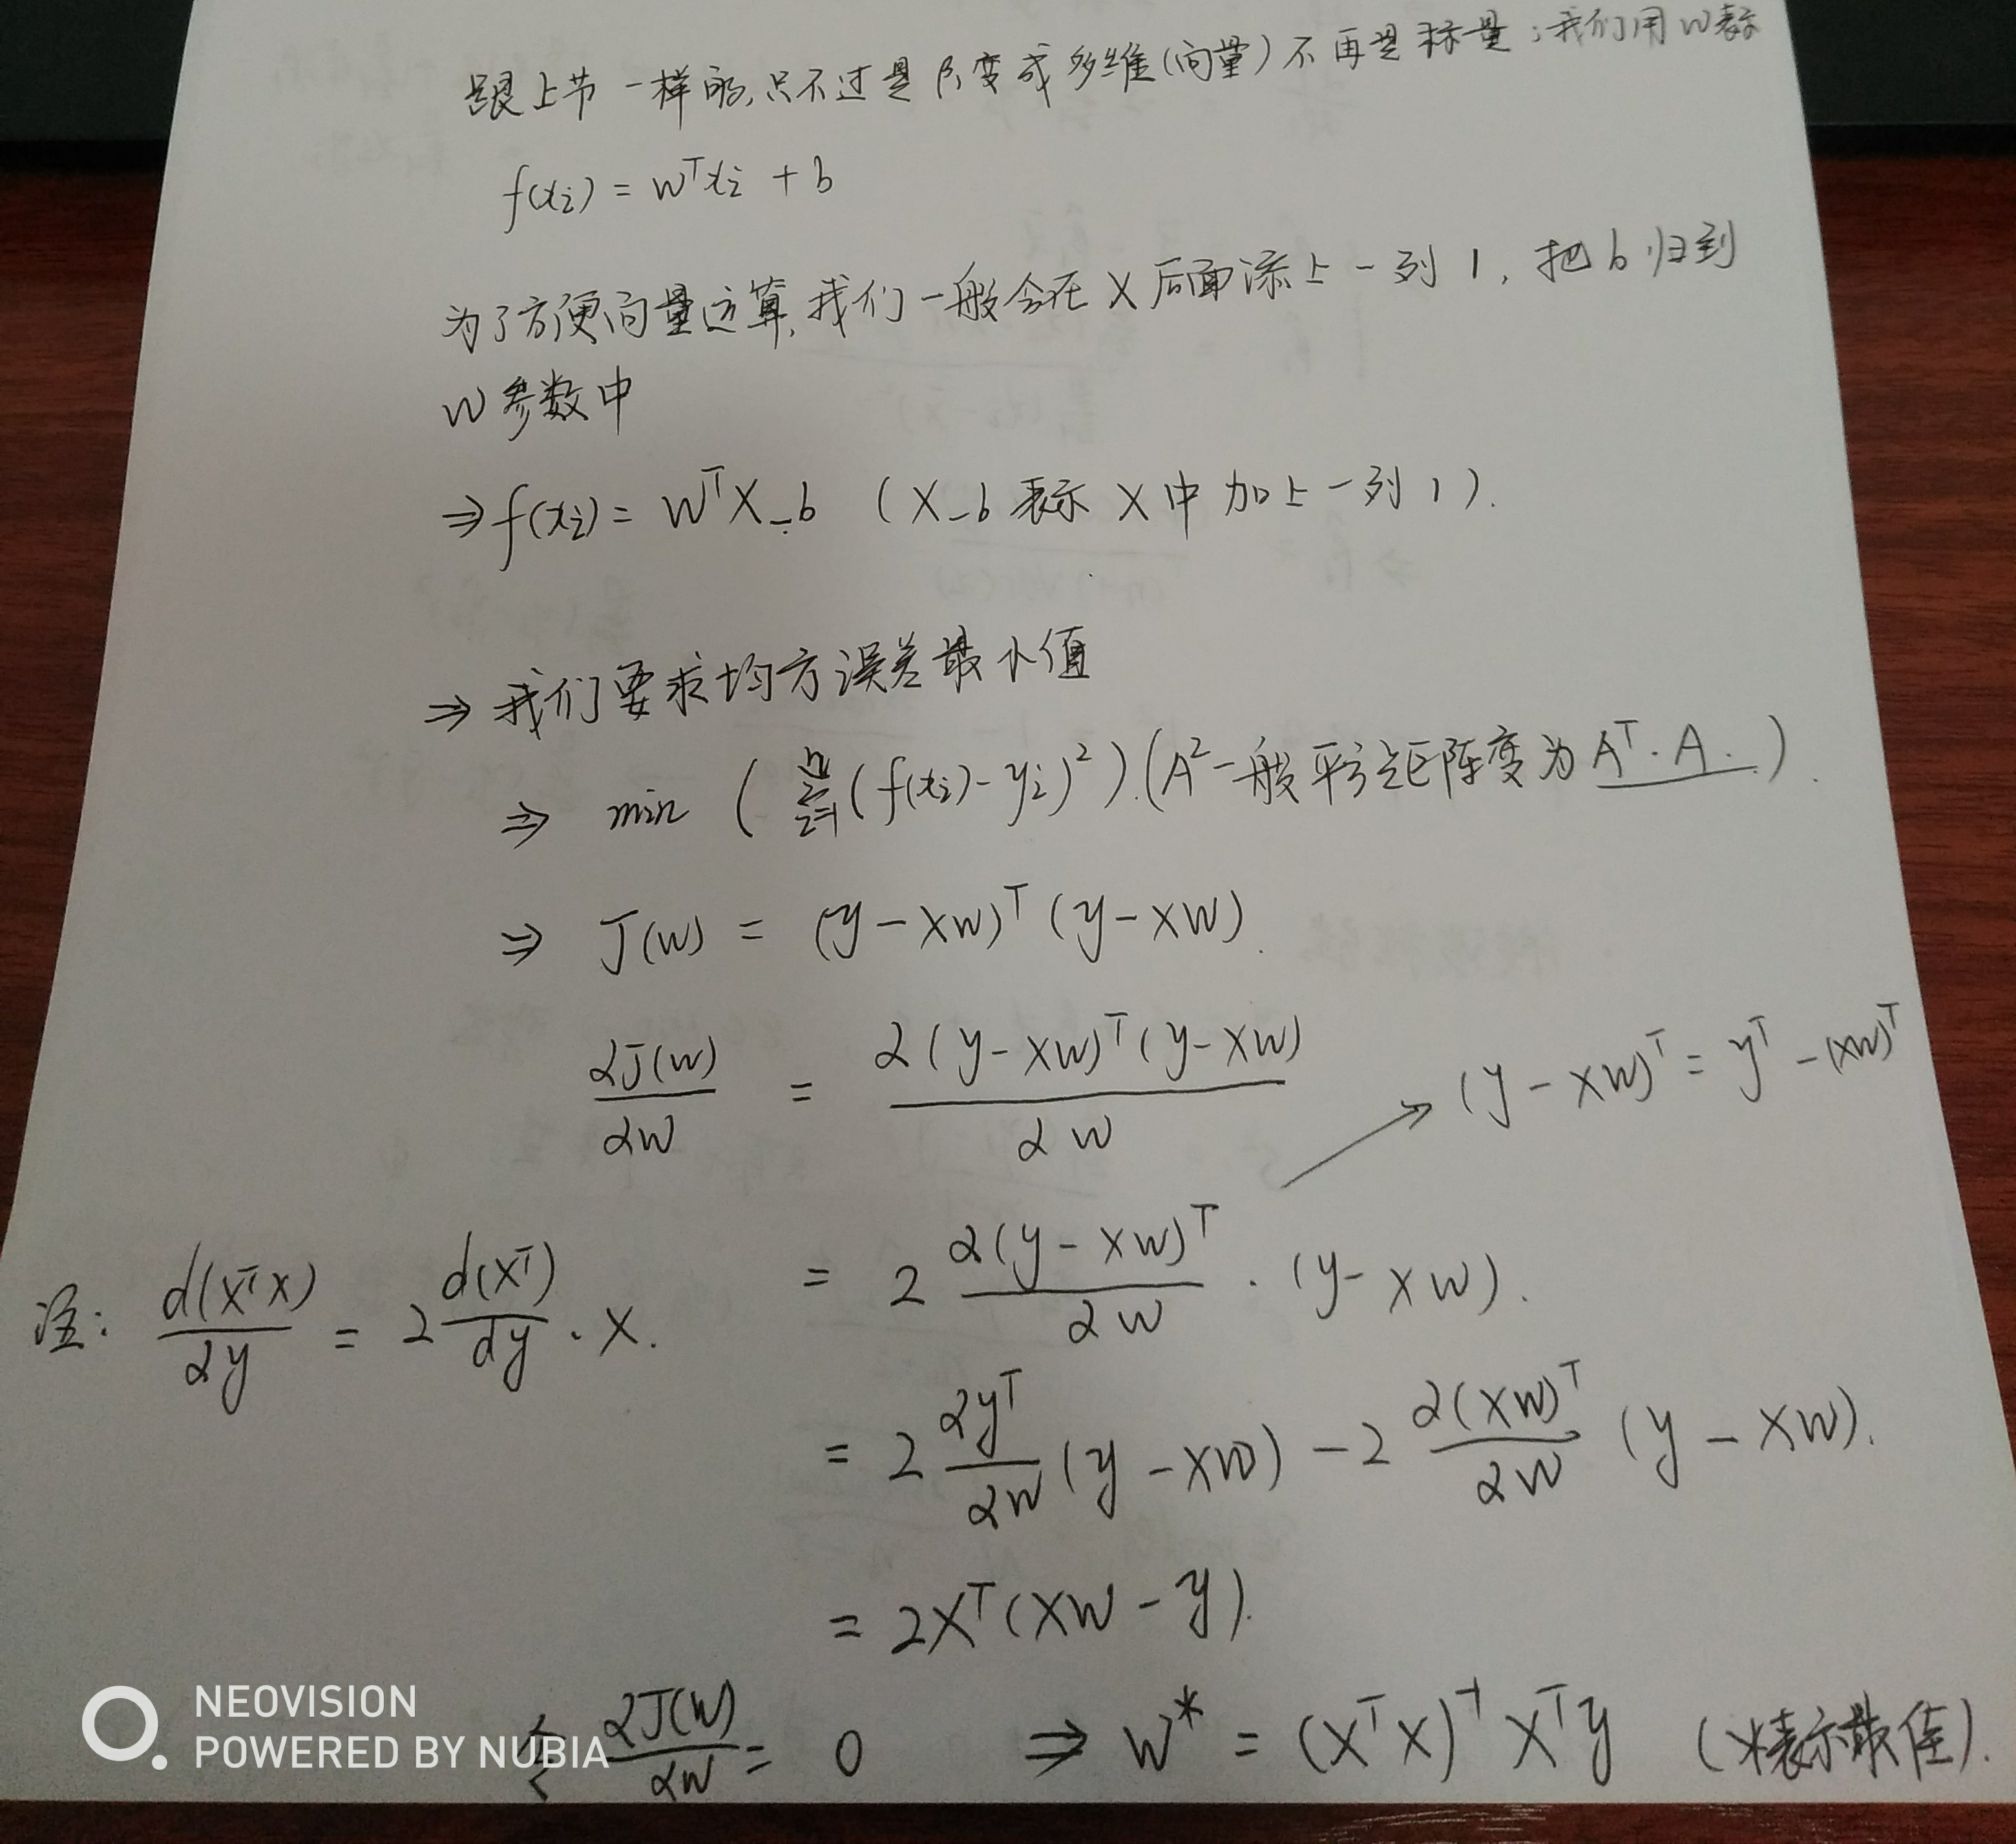 跟上节一样的,只不过是β₁变成多维(向量)不再是标量;我们用W表示
f(xi) = wᵀxi + b
为了方便向量运算,我们一般会在X后面添上一列1,把b归到
W参数中
⇒ f(xi) = WᵀX_b (X_b表示X中加上一列1).
⇒ 我们要求均方误差最小值
⇒ min (∑ⁿᵢ₌₁(f(xi)-yi)²).(A²一般形式矩阵变为Aᵀ·A.)
⇒ J(w) = (y-Xw)ᵀ(y-XW).
∂J(w)/∂W = ∂(y-XW)ᵀ(y-XW)/∂W
(y-XW)ᵀ = yᵀ-(XW)ᵀ
= 2 ∂(y-XW)ᵀ/∂W · (y-XW).
注: d(XᵀX)/∂y = 2 d(Xᵀ)/dy · X.
= 2 ∂yᵀ/∂W (y-XW) - 2 ∂(XW)ᵀ/∂W (y-XW).
= 2Xᵀ(XW-y).
令 ∂J(W)/∂W = 0 ⇒ W* = (XᵀX)⁻¹Xᵀy (*表示最佳).
NEOVISION
POWERED BY NUBIA